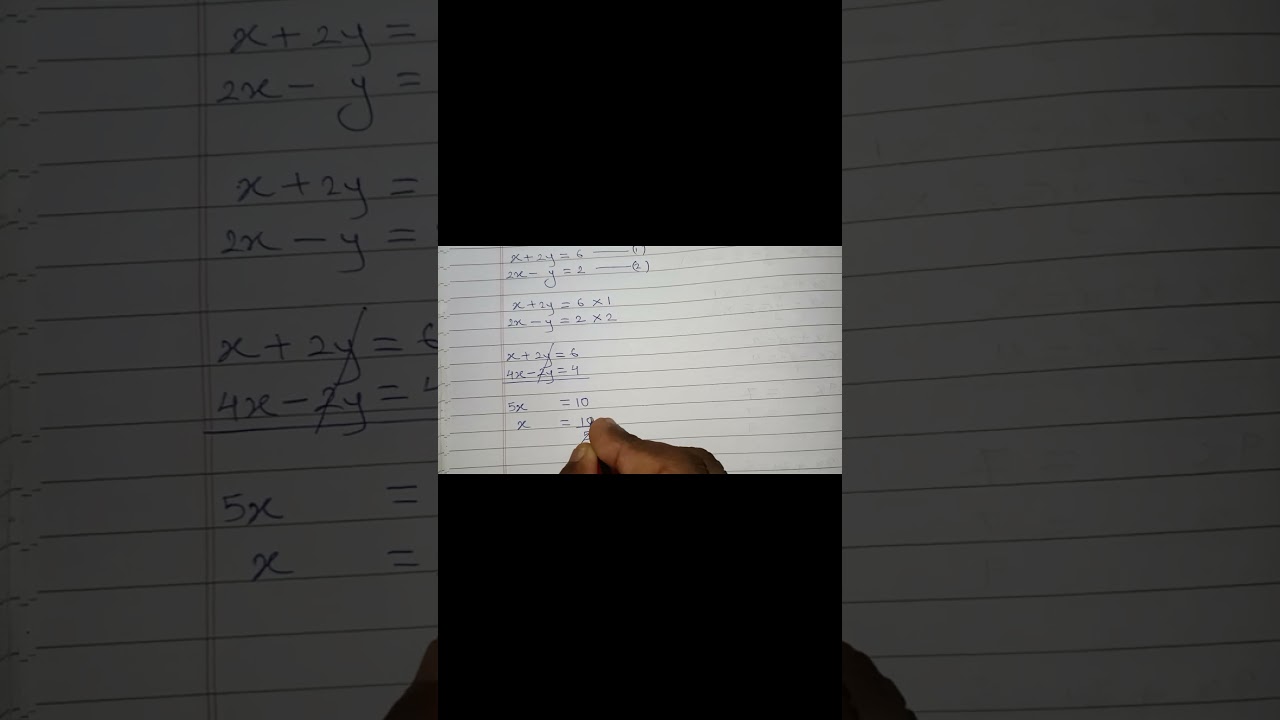 x + 2y = 6 —— (1)
2x - y = 2 —— (2)
x + 2y = 6 × 1
2x - y = 2 × 2
x + 2y = 6
4x - 2y = 4
5x = 10
x = 10